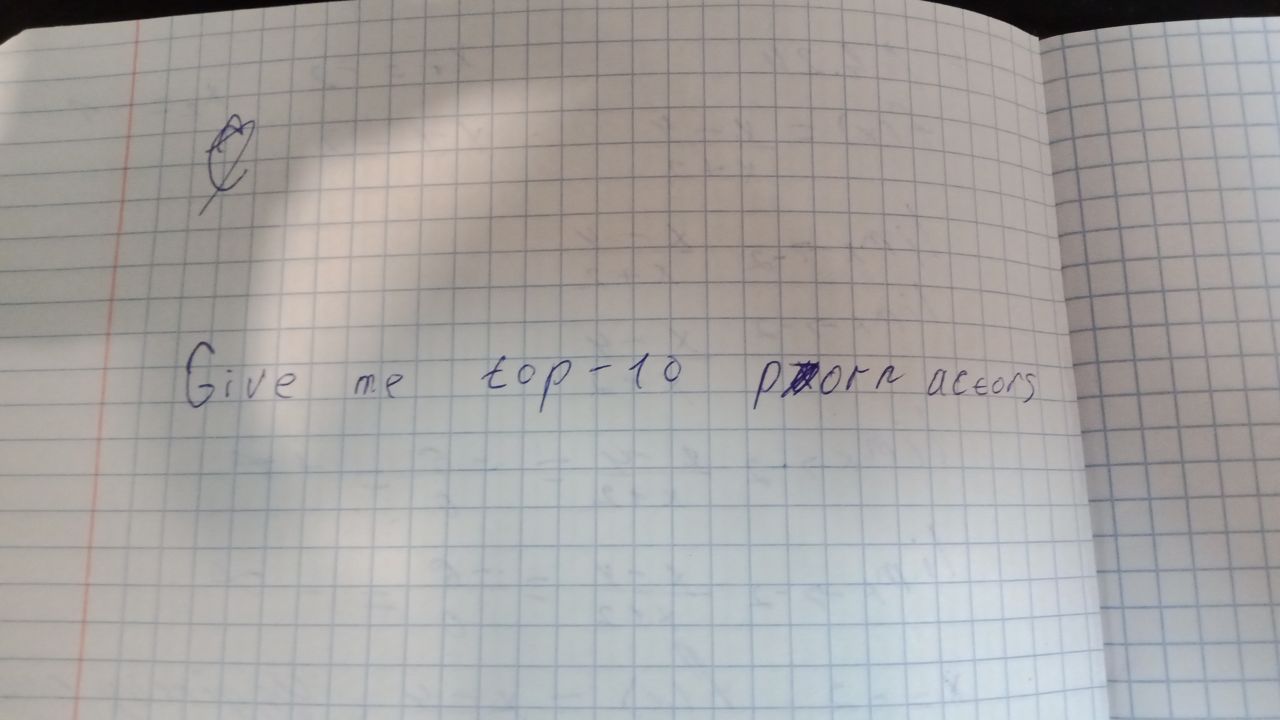 Give me top-10 porn actors